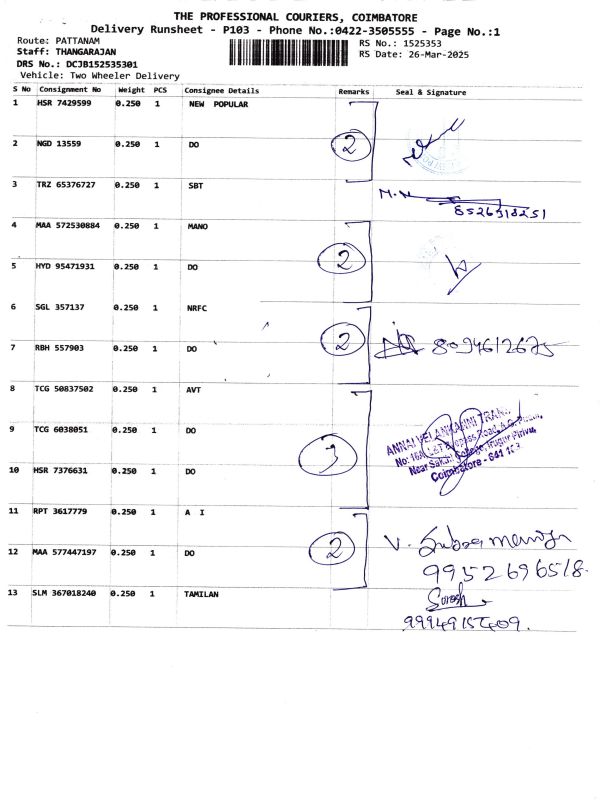 THE PROFESSIONAL COURIERS, COIMBATORE
Delivery Runsheet - P103 - Phone No.:0422-3505555 - Page No.:1
Route: PATTANAM RS No.: 1525353
Staff: THANGARAJAN RS Date: 26-Mar-2025
DRS No.: DCJB152535301
Vehicle: Two Wheeler Delivery
S No Consignment No Weight PCS Consignee Details Remarks Seal & Signature
1 HSR 7429599 0.250 1 NEW POPULAR
2 NGD 13559 0.250 1 DO 2
3 TRZ 65376727 0.250 1 SBT
4 MAA 572530884 0.250 1 MANO
5 HYD 95471931 0.250 1 DO 2
6 SGL 357137 0.250 1 NRFC
7 RBH 557903 0.250 1 DO 2
8 TCG 50837502 0.250 1 AVT
ANNAI VELANKANNI
9 TCG 6038051 0.250 1 DO 3
Coimbatore - 641 103
10 HSR 7376631 0.250 1 DO
11 RPT 3617779 0.250 1 A I
12 MAA 577447197 0.250 1 DO 2 V.
9952696518.
13 SLM 367018240 0.250 1 TAMILAN Suresh